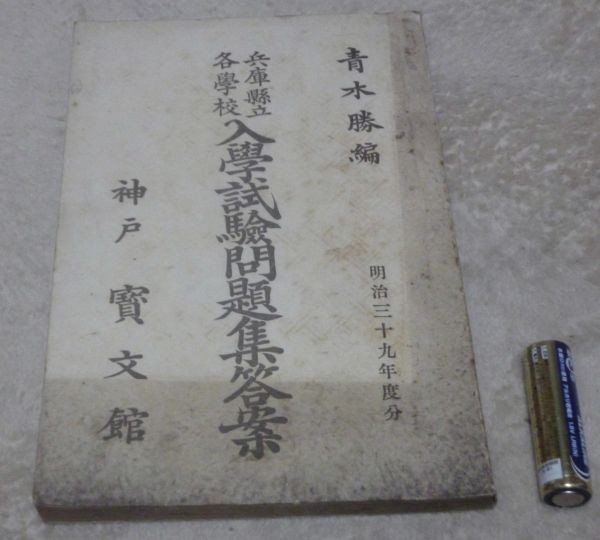 青木勝編
明治三十九年度分
兵庫縣立
各學校
入學試驗問題集答案
神戸 寶文館